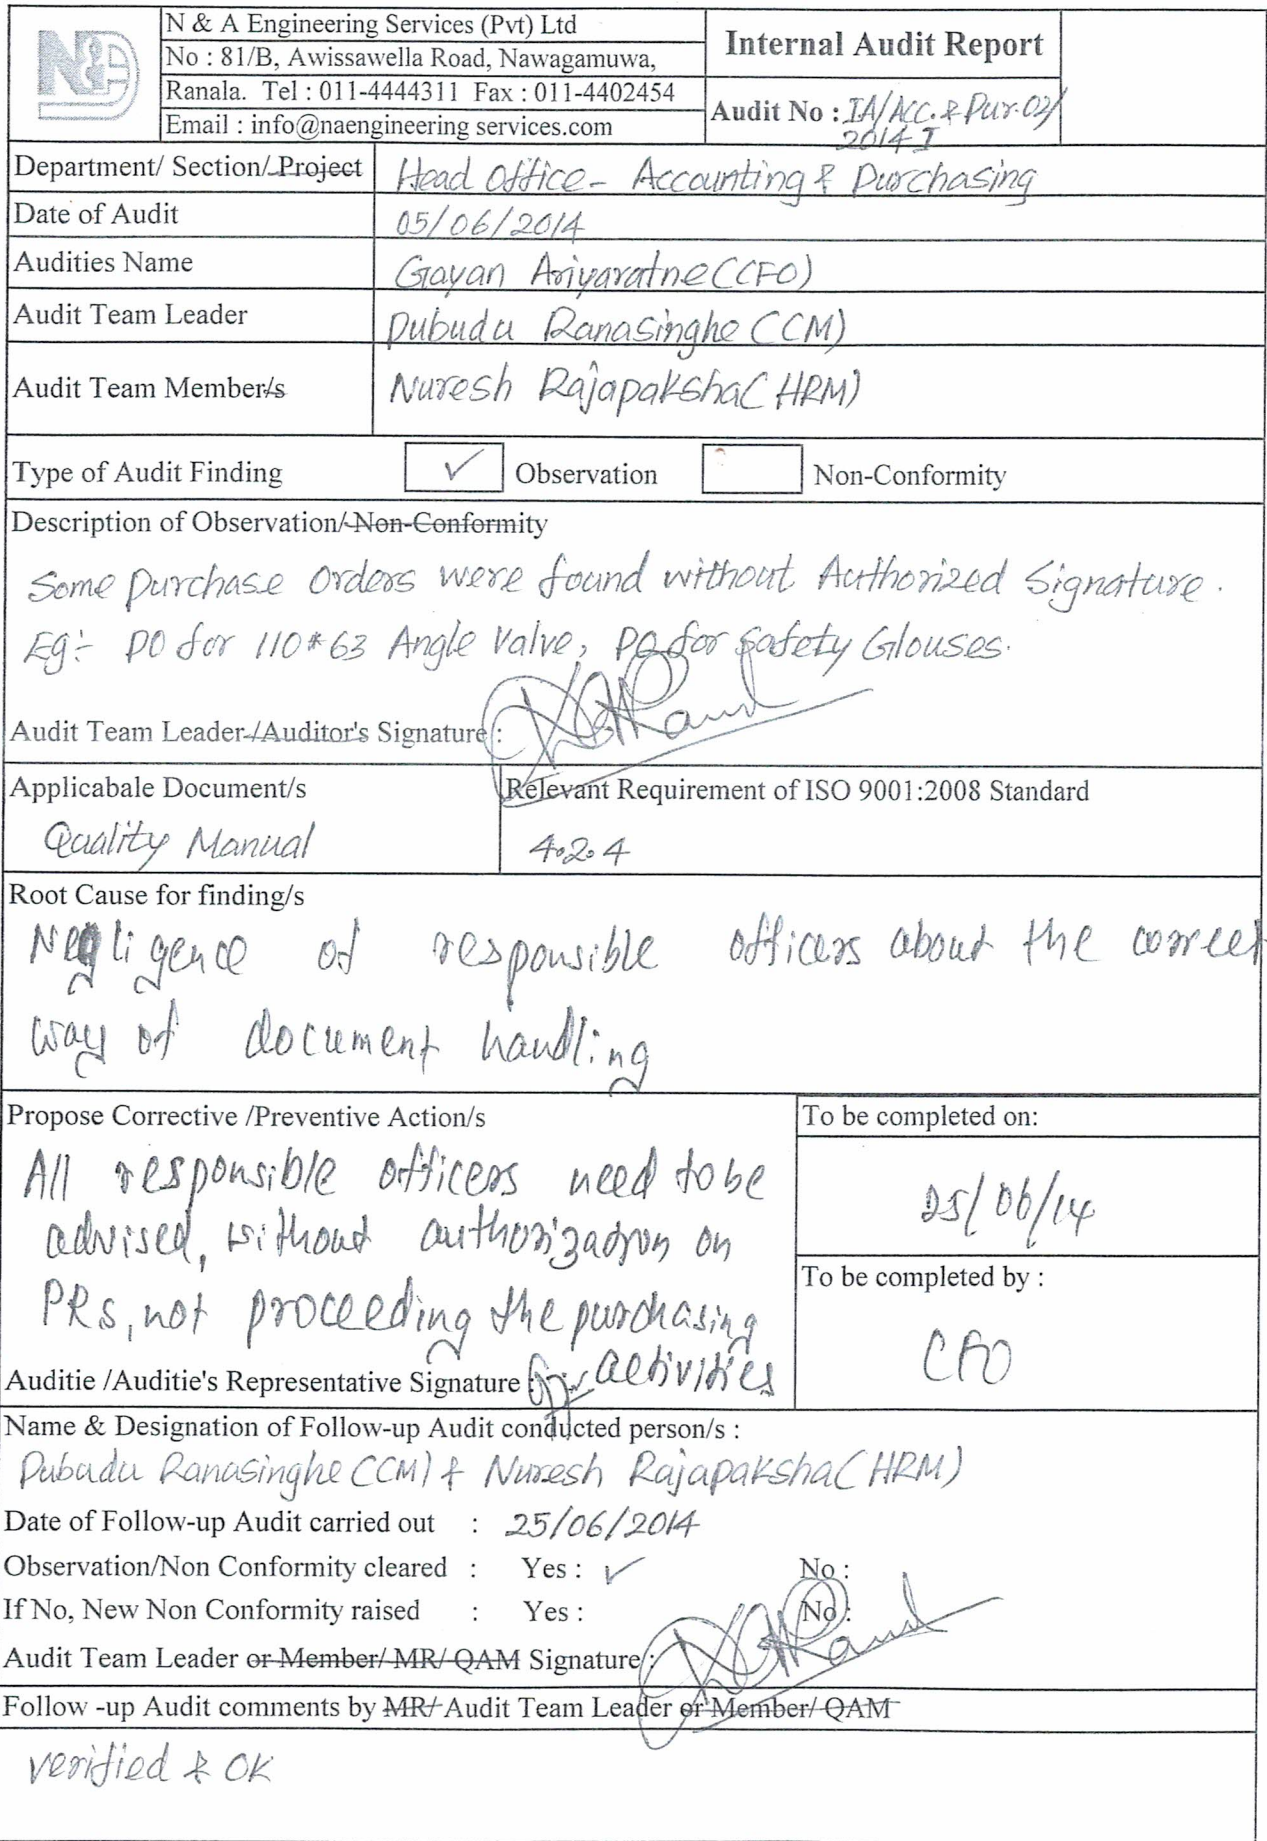 N&E
N & A Engineering Services (Pvt) Ltd
No : 81/B, Awissawella Road, Nawagamuwa,
Ranala. Tel : 011-4444311 Fax : 011-4402454
Email : info@naengineering services.com
Internal Audit Report
Audit No : IA/ACC.& Pur-02/
2014-I
Department/ Section/ Project Head Office - Accounting & Purchasing
Date of Audit 05/06/2014
Audities Name Gayan Ariyaratne (CFO)
Audit Team Leader Dubudu Ranasinghe (CCM)
Audit Team Member/s Nuresh Rajapaksha (HRM)
Type of Audit Finding ✓ Observation Non-Conformity
Description of Observation/ Non-Conformity
Some purchase orders were found without Authorized Signature.
Eg:- PO for 110*63 Angle Valve, PO for Safety Glouses.
Audit Team Leader /Auditor's Signature :
Applicabale Document/s Relevant Requirement of ISO 9001:2008 Standard
Quality Manual 4.2.4
Root Cause for finding/s
Negligence of responsible officers about the correct
way of document handling
Propose Corrective /Preventive Action/s To be completed on:
All responsible officers need to be
advised, without authorization on 25/06/14
PRs, not proceeding the purchasing
activities
To be completed by :
CFO
Auditie /Auditie's Representative Signature :
Name & Designation of Follow-up Audit conducted person/s :
Dubudu Ranasinghe (CCM) & Nuresh Rajapaksha (HRM)
Date of Follow-up Audit carried out : 25/06/2014
Observation/Non Conformity cleared : Yes : ✓ No :
If No, New Non Conformity raised : Yes : No :
Audit Team Leader or Member/ MR/ QAM Signature :
Follow -up Audit comments by MR/ Audit Team Leader or Member/ QAM
verified & OK